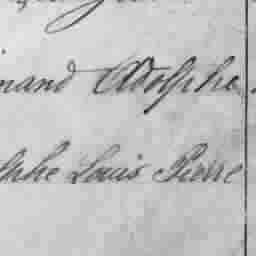 inand Adolphe
lphe Louis Pierre